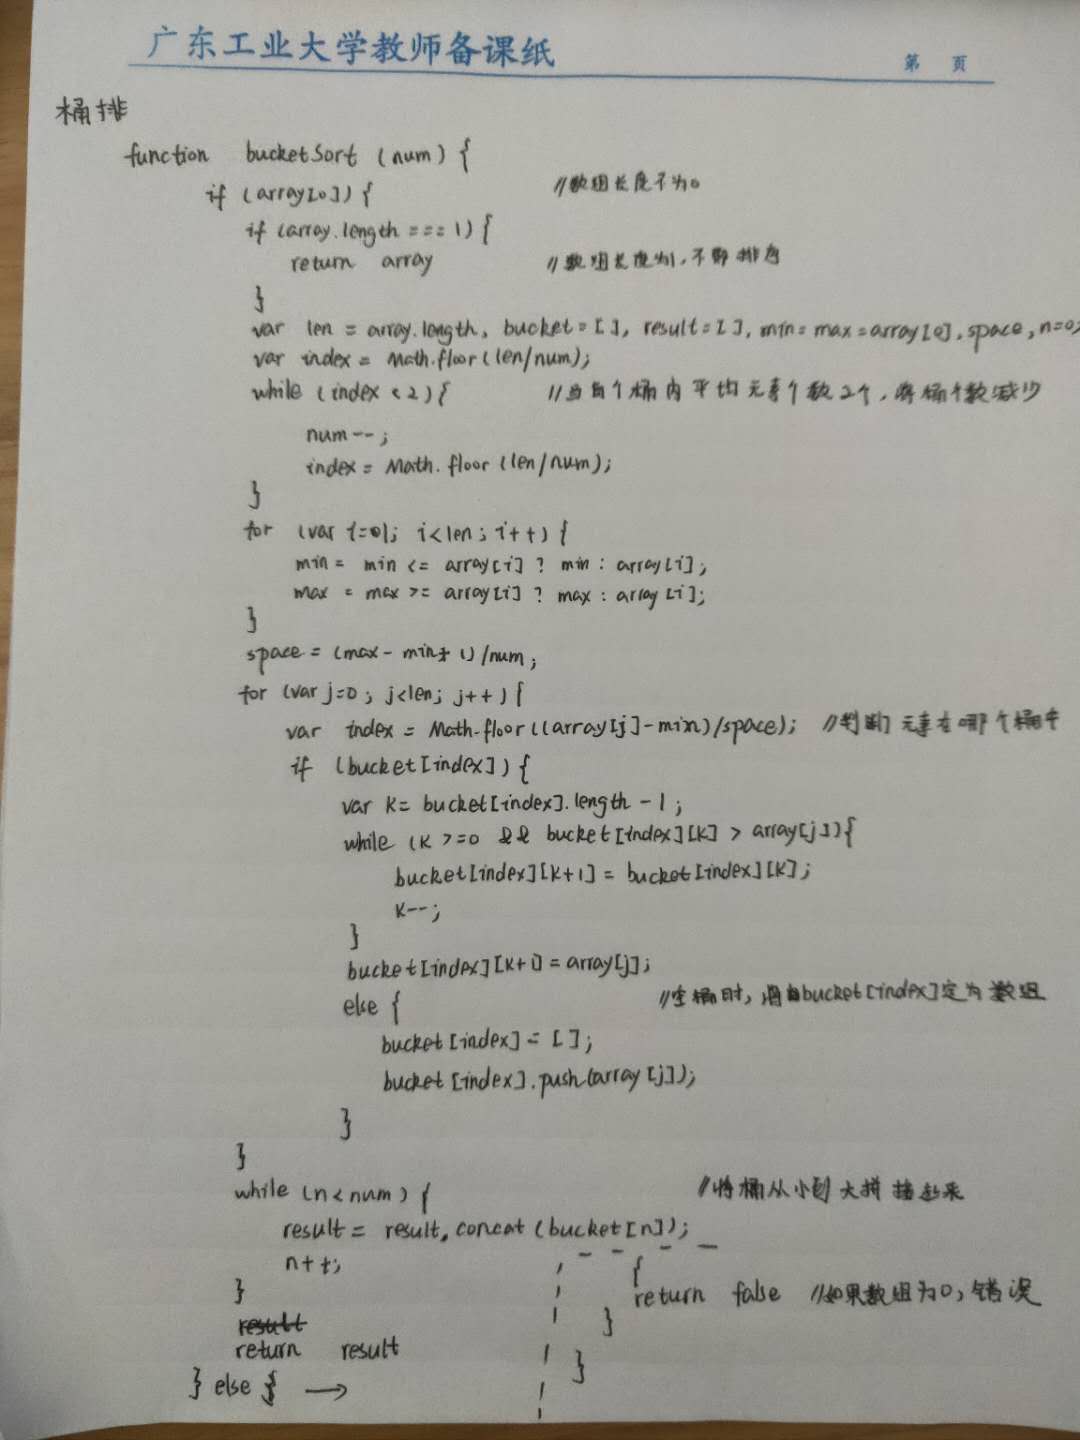 广东工业大学教师备课纸
第 页
桶排
function bucketSort (num) {
if (array[0]) { //数组长度不为0
if (array.length === 1) {
return array //数组长度为1,不用排序
}
var len = array.length, bucket = [], result = [], min = max = array[0], space, n=0;
var index = Math.floor(len/num);
while (index < 2) { //当每个桶内平均元素个数2个,将桶个数减少
num--;
index = Math.floor(len/num);
}
for (var i=0; i<len; i++) {
min = min <= array[i] ? min : array[i];
max = max >= array[i] ? max : array[i];
}
space = (max - min + 1)/num;
for (var j=0; j<len; j++) {
var index = Math.floor((array[j]-min)/space); //判断元素在哪个桶中
if (bucket[index]) {
var k = bucket[index].length - 1;
while (k >=0 && bucket[index][k] > array[j]) {
bucket[index][k+1] = bucket[index][k];
k--;
}
bucket[index][k+1] = array[j];
else { //空桶时,将bucket[index]定为数组
bucket[index] = [];
bucket[index].push(array[j]);
}
}
while (n<num) { //将桶从小到大拼接起来
result = result.concat(bucket[n]);
n++;
}
return result
} else { →
{
return false //如果数组为0,错误
}
}